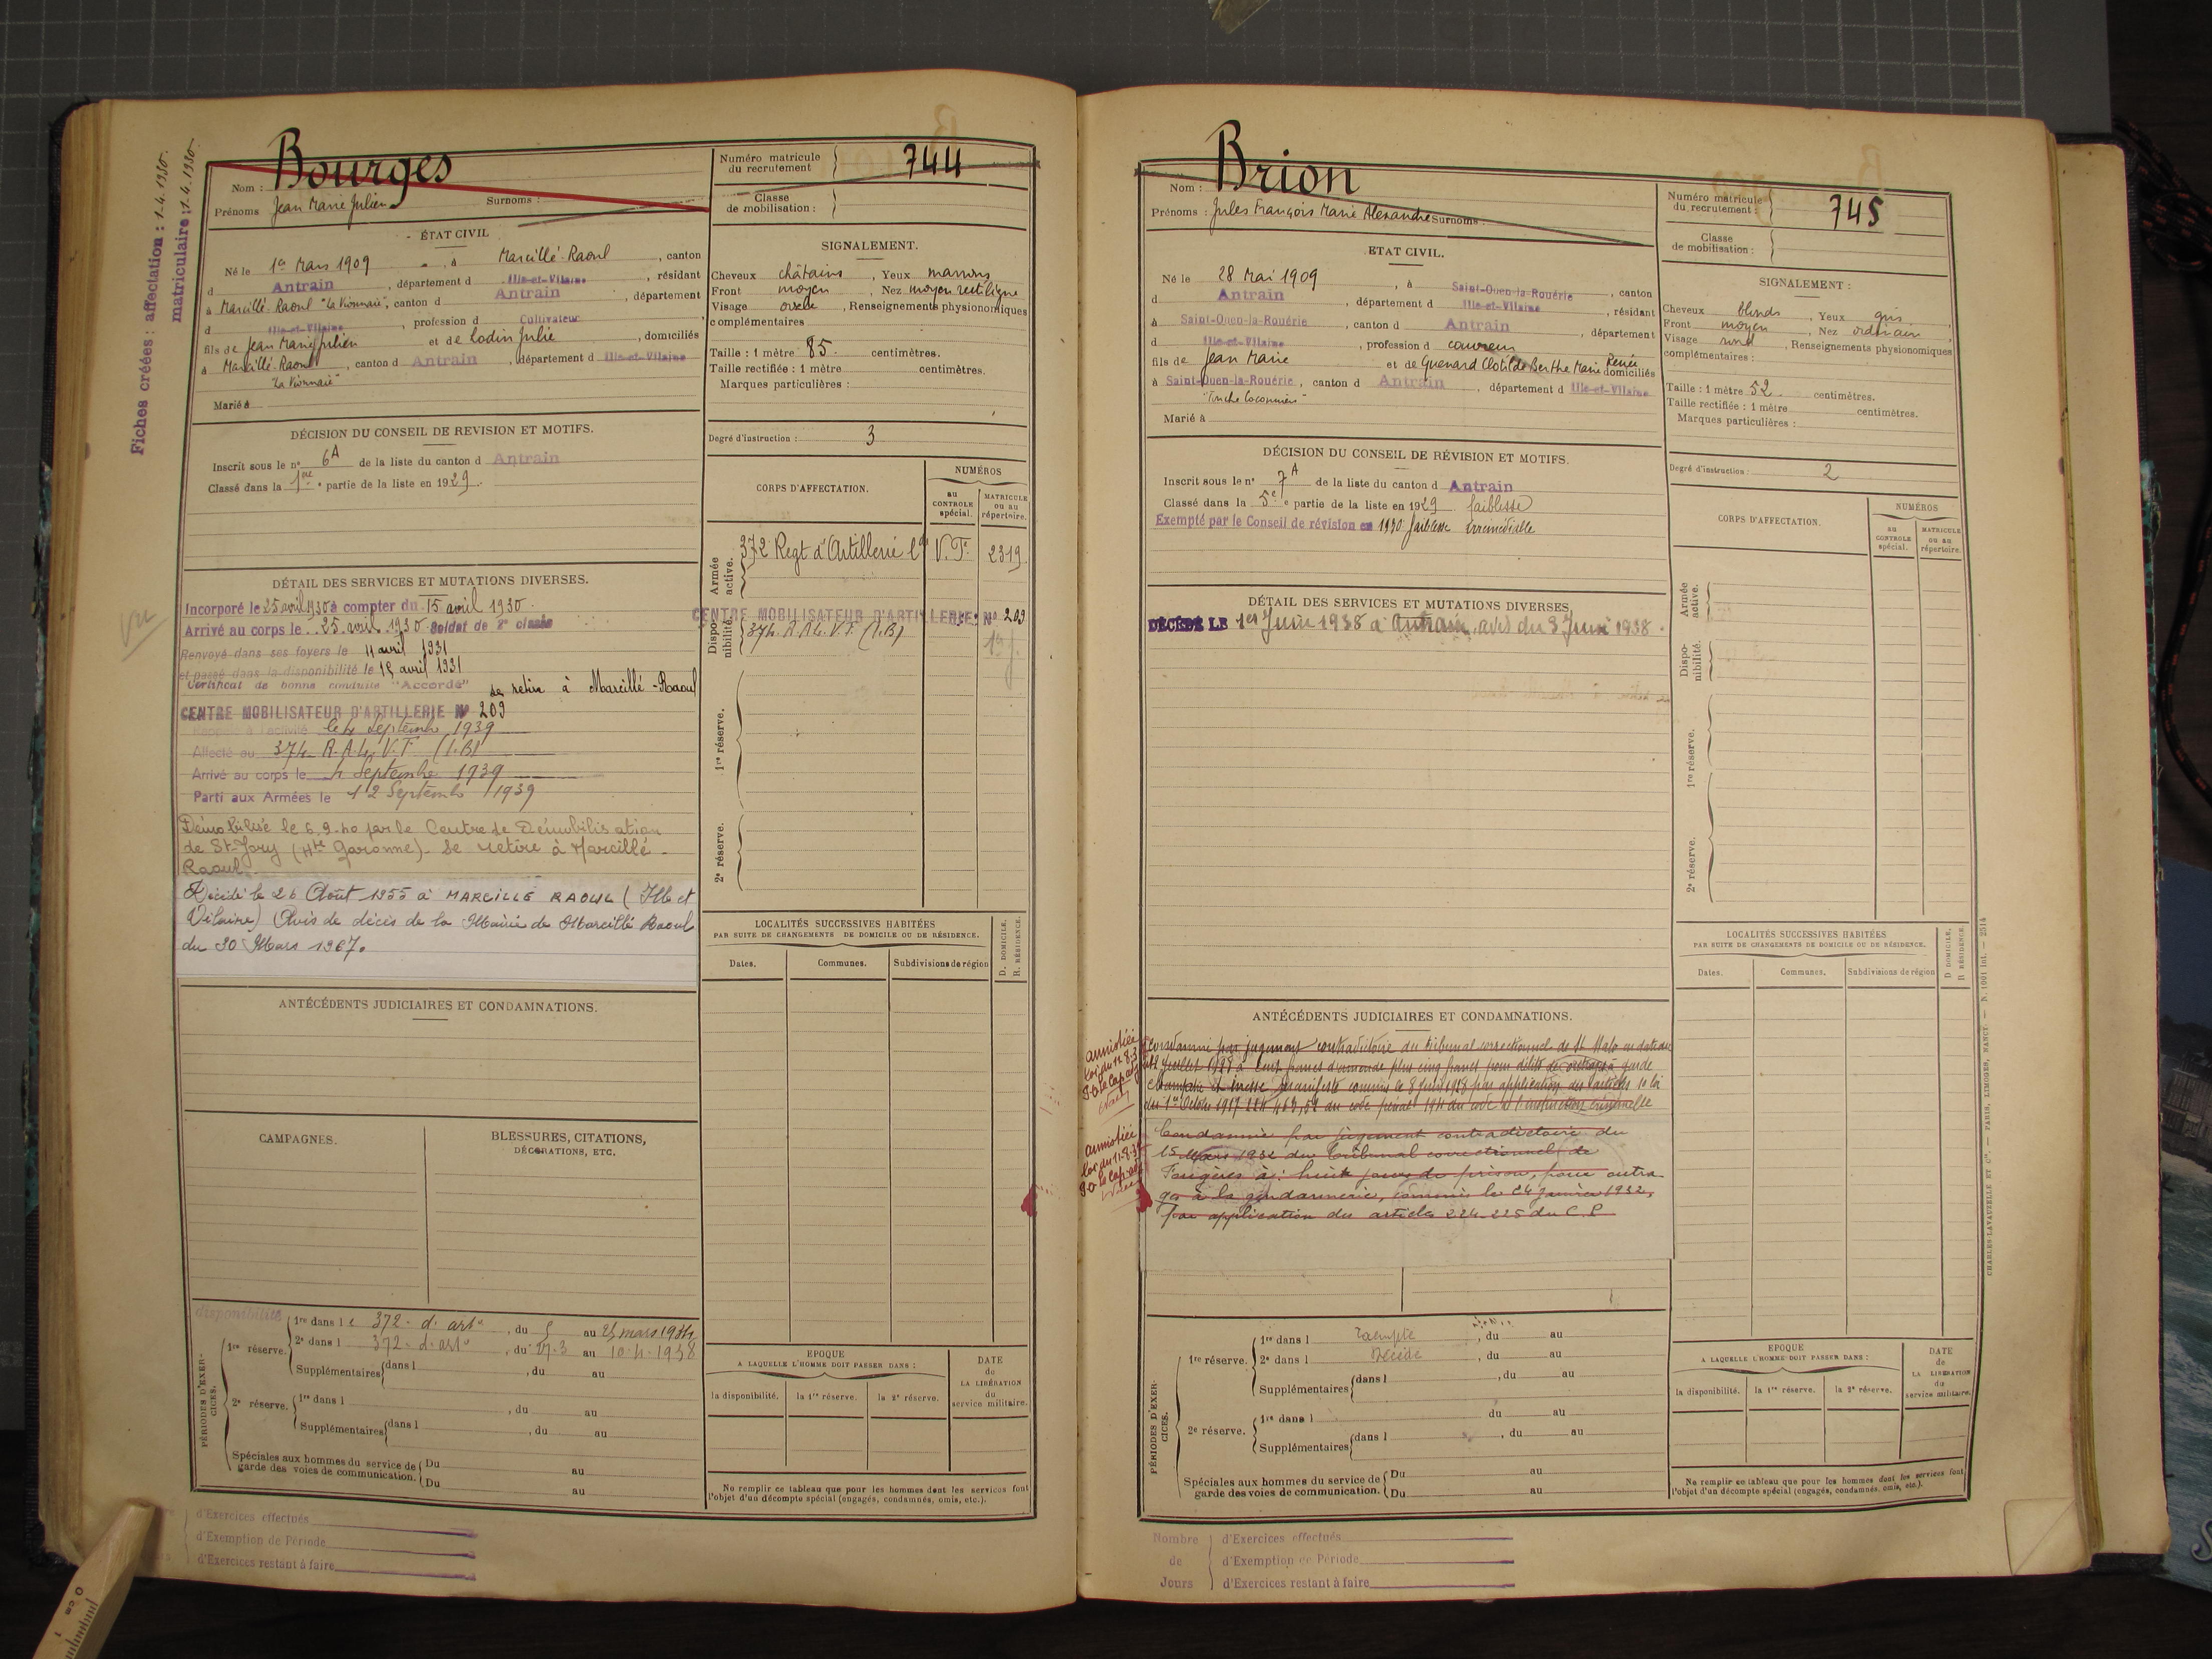 Fiches créées : affectation : 1-4-1930.
matriculaire : 1-4-1930.
Bourges
Nom :
Prénoms Jean Marie Julien Surnoms :
ÉTAT CIVIL
Né le 1er Mars 1909 à Marcillé-Raoul, canton
d Antrain, département d Ille-et-Vilaine, résidant
à Marcillé-Raoul, canton d Antrain, département
d Ille-et-Vilaine, profession d Cultivateur
fils de Jean Marie Julien et de Lodin Julie, domiciliés
à Marcillé-Raoul, canton d Antrain, département d Ille-et-Vilaine
Marié à
DÉCISION DU CONSEIL DE REVISION ET MOTIFS.
Inscrit sous le n° 6A de la liste du canton d Antrain
Classé dans la 1ère partie de la liste en 1929.
DÉTAIL DES SERVICES ET MUTATIONS DIVERSES.
Incorporé le 25 avril 1930 à compter du 15 avril 1930.
Arrivé au corps le 25 avril 1930 Soldat de 2e classe
Renvoyé dans ses foyers le 11 avril 1931
et passé dans la disponibilité le 15 avril 1931
Certificat de bonne conduite "Accordé" se retire à Marcillé-Raoul
CENTRE MOBILISATEUR D'ARTILLERIE N° 209
Rappelé à l'activité le 4 Septembre 1939
Affecté au 374 R.A.L.V.F (I.B)
Arrivé au corps le 4 Septembre 1939
Parti aux Armées le 12 Septembre 1939
Démobilisé le 6.9.40 par le Centre de Démobilisation
de St-Jory (Hte Garonne). Se retire à Marcillé-
Raoul.
Décédé le 26 Août 1955 à MARCILLÉ RAOUL (Ille et
Vilaine) Avis de décès de la Mairie de Marcillé Raoul
du 30 Mars 1967.
ANTÉCÉDENTS JUDICIAIRES ET CONDAMNATIONS.
CAMPAGNES.
BLESSURES, CITATIONS,
DÉCORATIONS, ETC.
disponibilité
PÉRIODES D'EXERCICES.
1re réserve. 1re dans l e 372e d'artie, du 5 au 25 mars 1934
2e dans l 372e d'artie, du 21.3 au 10-4-1938
Supplémentaires dans l , du au
2e réserve. 1re dans l , du au
Supplémentaires dans l , du au
Spéciales aux hommes du service de Du au
garde des voies de communication. Du au
d'Exercices effectués
d'Exemption de Période
d'Exercices restant à faire
Numéro matricule
du recrutement 744
Classe
de mobilisation :
SIGNALEMENT.
Cheveux châtains, Yeux marrons
Front moyen, Nez moyen rectiligne
Visage ovale, Renseignements physionomiques
complémentaires
Taille : 1 mètre 85 centimètres.
Taille rectifiée : 1 mètre centimètres.
Marques particulières :
Degré d'instruction : 3
CORPS D'AFFECTATION.
NUMÉROS
au CONTROLE spécial.
MATRICULE ou au répertoire.
Armée active. 372 Regt d'Artillerie lde V.F. 2319
CENTRE MOBILISATEUR D'ARTILLERIE N° 209
Disponibilité. 374 R.A.L.V.F. (I.B)
1re réserve.
2e réserve.
LOCALITÉS SUCCESSIVES HABITÉES
PAR SUITE DE CHANGEMENTS DE DOMICILE OU DE RÉSIDENCE.
Dates.
Communes.
Subdivisions de région
D. DOMICILE.
R. RÉSIDENCE.
EPOQUE
A LAQUELLE L'HOMME DOIT PASSER DANS :
la disponibilité.
la 1re réserve.
la 2e réserve.
DATE
de
LA LIBÉRATION
du
service militaire.
Ne remplir ce tableau que pour les hommes dont les services font
l'objet d'un décompte spécial (engagés, condamnés, omis, etc.).
Brion
Nom :
Prénoms : Jules François Marie Alexandre Surnoms
ETAT CIVIL.
Né le 28 Mai 1909, à Saint-Ouen-la-Rouërie, canton
d Antrain, département d Ille-et-Vilaine, résidant
à Saint-Ouen-la-Rouërie, canton d Antrain, département
d Ille-et-Vilaine, profession d couvreur
fils de Jean Marie et de Guenard Clotilde Berthe Marie Renée domiciliés
à Saint-Ouen-la-Rouërie, canton d Antrain, département d Ille-et-Vilaine
Marié à
DÉCISION DU CONSEIL DE RÉVISION ET MOTIFS.
Inscrit sous le n° 7A de la liste du canton d Antrain
Classé dans la 5e partie de la liste en 1929 faiblesse
Exempté par le Conseil de révision en 1930 faiblesse irrémédiable
DÉTAIL DES SERVICES ET MUTATIONS DIVERSES.
DÉCÉDÉ LE 1er Juin 1938 à Antrain, avis du 3 Juin 1938.
ANTÉCÉDENTS JUDICIAIRES ET CONDAMNATIONS.
amnistiée
amnistiée
Condamné par jugement contradictoire du tribunal correctionnel de St Malo en date du
12 Juillet 1928 à cent francs d'amende plus cinq francs pour délits de outrage à garde
champêtre et ivresse manifeste commis le 8 Juin 1928 par application des articles 1e loi
du 1er Octobre 1917 224 463, 52 au code pénal 194 du code d'instruction criminelle
Condamné par jugement contradictoire du
15 Mars 1932 du Tribunal correctionnel de
Fougères à : huit jours de prison, pour outra-
ges à la gendarmerie, commis le 24 janvier 1932,
par application des articles 224-225 du C.P.
PÉRIODES D'EXERCICES.
1re réserve. 1re dans l Exempté, du au
2e dans l Décédé, du au
Supplémentaires dans l , du au
2e réserve. 1re dans l du au
Supplémentaires dans l , du au
Spéciales aux hommes du service de Du au
garde des voies de communication. Du au
Nombre
de
Jours
d'Exercices effectués
d'Exemption de Période
d'Exercices restant à faire
Numéro matricule
du recrutement : 745
Classe
de mobilisation :
SIGNALEMENT :
Cheveux blonds, Yeux gris
Front moyen, Nez ordinaire
Visage rond, Renseignements physionomiques
complémentaires :
Taille : 1 mètre 52 centimètres.
Taille rectifiée : 1 mètre centimètres.
Marques particulières :
Degré d'instruction : 2
CORPS D'AFFECTATION.
NUMÉROS
au CONTROLE spécial.
MATRICULE ou au répertoire.
Armée active.
Disponibilité.
1re réserve.
2e réserve.
LOCALITÉS SUCCESSIVES HABITÉES
PAR SUITE DE CHANGEMENTS DE DOMICILE OU DE RÉSIDENCE.
Dates.
Communes.
Subdivisions de région
D DOMICILE.
R RÉSIDENCE.
EPOQUE
A LAQUELLE L'HOMME DOIT PASSER DANS :
la disponibilité.
la 1re réserve.
la 2e réserve.
DATE
de
LA LIBÉRATION
du
service militaire.
Ne remplir ce tableau que pour les hommes dont les services font
l'objet d'un décompte spécial (engagés, condamnés, omis, etc.).
CHARLES-LAVAUZELLE ET Cie. — PARIS, LIMOGES, NANCY. — N. 1001 int. — 2514